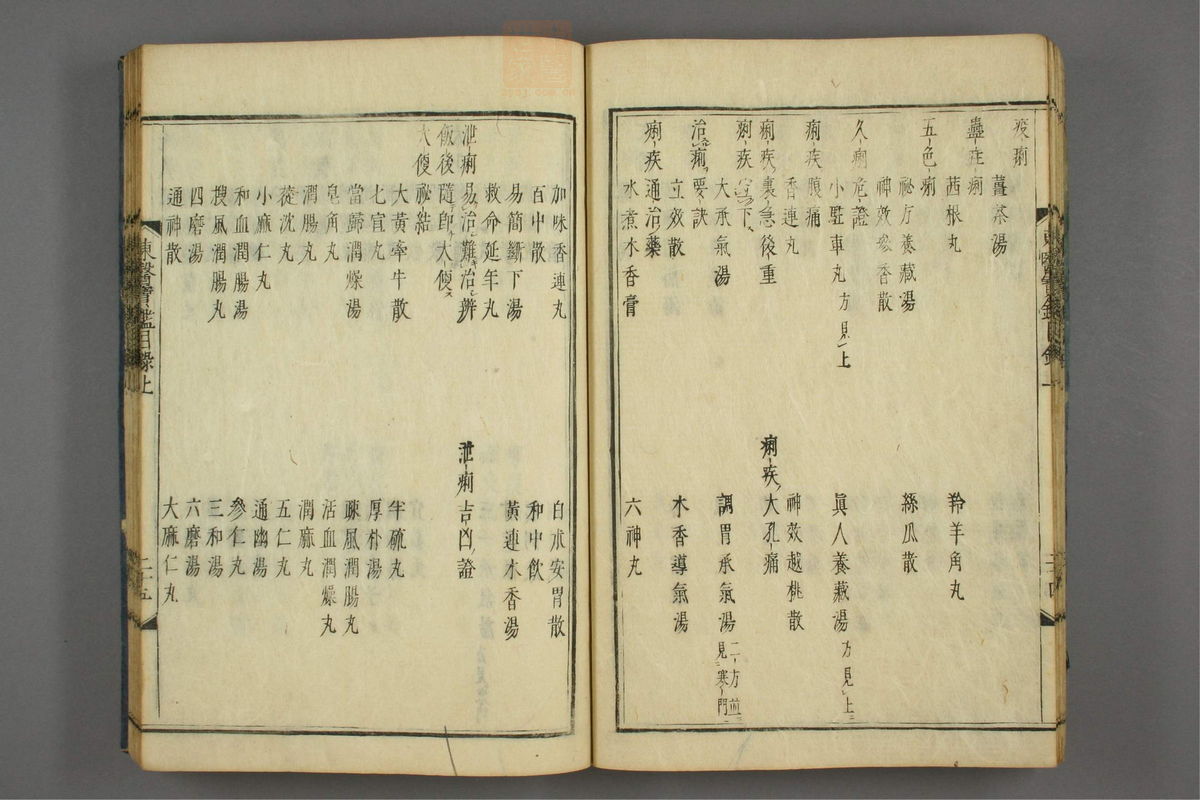 疫痢
薑茶湯
蠱疰痢
茜根丸
羚羊角丸
五色痢
秘方養藏湯
絲瓜散
神效參香散
久痢危證
小駐車丸 方見上
眞人養藏湯 方見上
痢疾腹痛
香連丸
神效越桃散
痢疾裏急後重
痢疾大孔痛
痢疾宜下
大承氣湯
調胃承氣湯 二方並見寒門
治痢要訣
立效散
木香導氣湯
痢疾通治藥
水煮木香膏
六神丸
加味香連丸
白朮安胃散
百中散
和中飲
易簡斷下湯
黃連木香湯
救命延年丸
泄痢易治難治辨
泄痢吉凶證
飯後隨卽大便
大便秘結
大黃牽牛散
半硫丸
七宣丸
厚朴湯
當歸潤燥湯
疎風潤腸丸
皂角丸
活血潤燥丸
潤腸丸
潤麻丸
蓯沈丸
五仁丸
小麻仁丸
通幽湯
和血潤腸湯
參仁丸
搜風潤腸丸
三和湯
四磨湯
六磨湯
通神散
大麻仁丸
東醫寶鑑目錄上
二十五